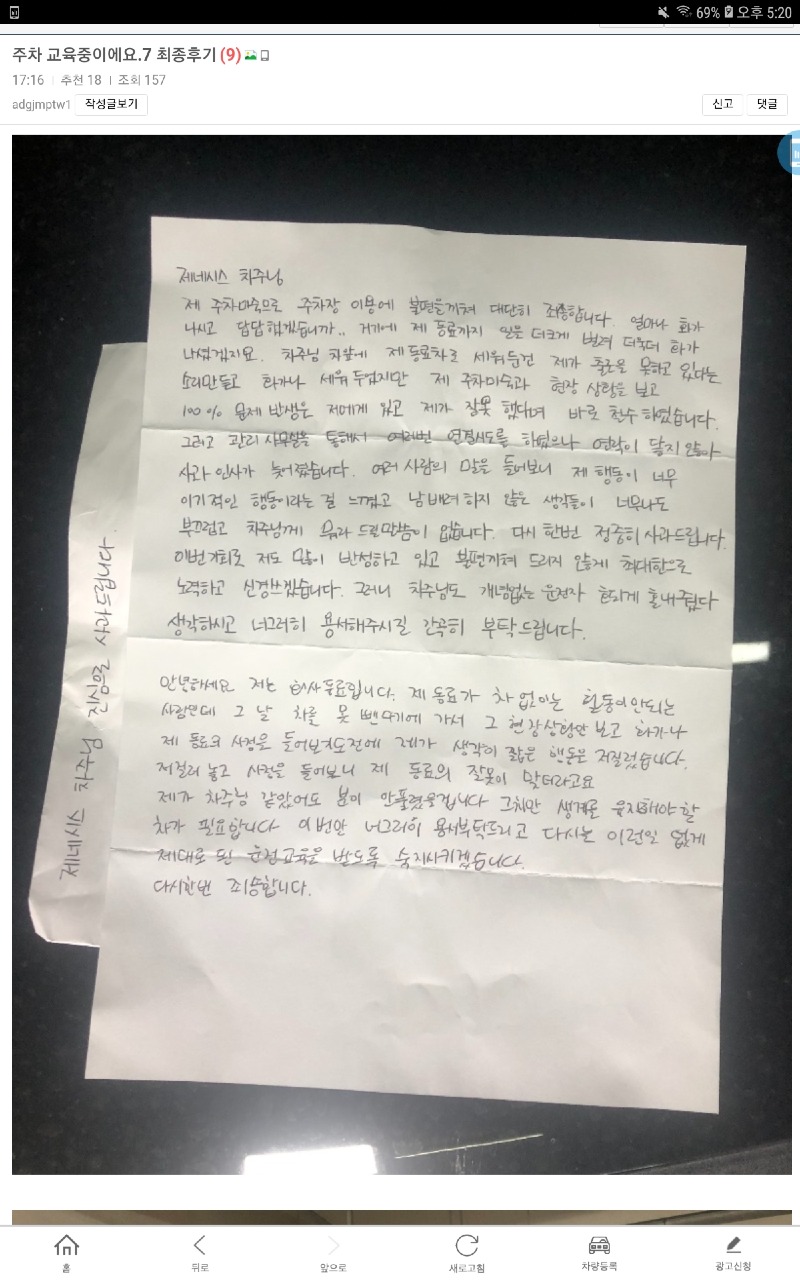 69% 오후 5:20
주차 교육중이에요.7 최종후기 (9)
17:16 | 추천 18 | 조회 157
adgjmptw1 작성글보기 신고 댓글
제네시스 차주님
제 주차미숙으로 주차장 이용에 불편을끼쳐 대단히 죄송합니다. 얼마나 화가
나시고 답답하겠습니까.. 거기에 제 동료까지 일을 더크게 벌려 더욱더 화가
나셨겠지요. 차주님 차앞에 제 동료차로 세워둔건 제가 출근을 못하고 있다는
소리만듣고 화가나 세워 두었지만 제 주차미숙과 현장 상황을 보고
100% 문제 발생은 저에게 있고 제가 잘못 했다며 바로 철수 하였습니다.
그리고 관리 사무실을 통해서 여러번 연결시도를 하였으나 연락이 닿지 않아
사과 인사가 늦어졌습니다. 여러 사람의 말을 들어보니 제 행동이 너무
이기적인 행동이라는 걸 느꼈고 남 배려 하지 않은 생각들이 너무나도
부끄럽고 차주님께 뭐라 드릴말씀이 없습니다. 다시 한번 정중히 사과드립니다.
이번 기회로 저도 많이 반성하고 있고 불편끼쳐 드리지 않게 최대한으로
노력하고 신경쓰겠습니다. 그러니 차주님도 개념없는 운전자 혼내줬다
생각하시고 너그러히 용서해주시길 간곡히 부탁드립니다.
안녕하세요 저는 회사동료입니다. 제 동료가 차 없이는 활동이안되는
사람인데 그 날 차를 못 뺀다기에 가서 그 현장상황만 보고 화가나
제 동료의 사정을 들어보기도전에 제가 생각이 짧은 행동을 저질렀습니다.
저질러 놓고 사정을 들어보니 제 동료의 잘못이 맞더라고요
제가 차주님 같았어도 분이 안풀렸을겁니다 그치만 생계를 유지해야 할
차가 필요합니다 이번만 너그러이 용서부탁드리고 다시는 이런일 없게
제대로 된 운전교육을 받도록 숙지시키겠습니다.
다시한번 죄송합니다.
제네시스 차주님 진심으로 사과드립니다
홈 뒤로 앞으로 새로고침 차량등록 광고신청